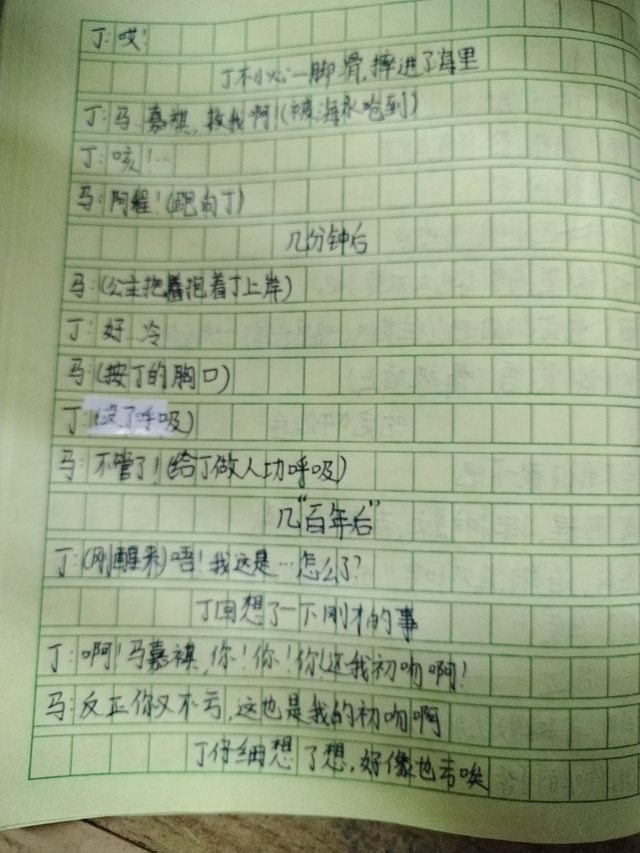 丁:哎!
丁不小心一脚滑,摔进了海里
丁:马嘉祺,救我啊!(被海水呛到)
丁:咳!…
马:阿程!(跑向丁)
几分钟后
马:(公主抱着抱着丁上岸)
丁:好…冷
马:(按丁的胸口)
丁:(没了呼吸)
马:不管了!(给丁做人功呼吸)
几“百年后”
丁:(刚醒来)唔!我这是…怎么了?
丁回想了一下刚才的事
丁:啊!马嘉祺,你!你!你!还我初吻啊!
马:反正你又不亏,这也是我的初吻啊
丁仔细想了想,好像也亏唉